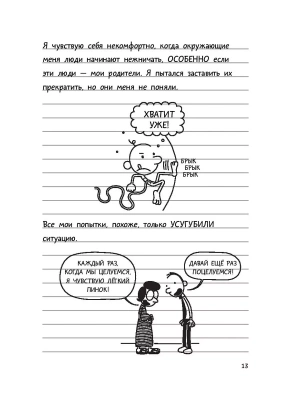 Я чувствую себя некомфортно, когда окружающие
меня люди начинают нежничать, ОСОБЕННО если
эти люди — мои родители. Я пытался заставить их
прекратить, но они меня не поняли.
ХВАТИТ
УЖЕ!
БРЫК
БРЫК
БРЫК
Все мои попытки, похоже, только УСУГУБИЛИ
ситуацию.
КАЖДЫЙ РАЗ,
КОГДА МЫ ЦЕЛУЕМСЯ,
Я ЧУВСТВУЮ ЛЁГКИЙ
ПИНОК!
ДАВАЙ ЕЩЁ РАЗ
ПОЦЕЛУЕМСЯ!
13